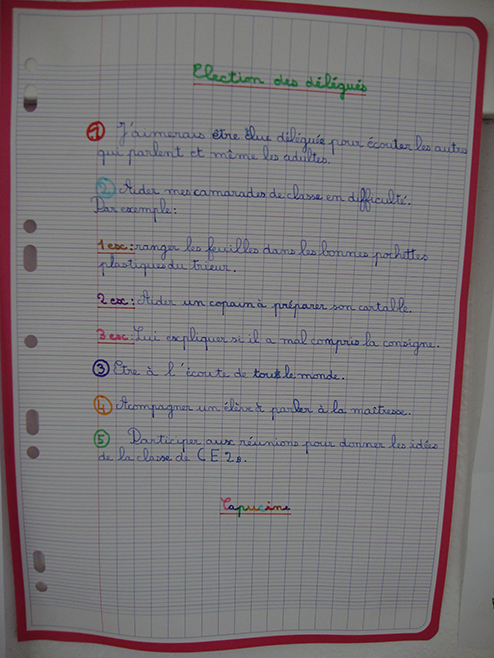 Election des délégués
1 J'aimerais être élue déléguée pour écouter les autres
qui parlent et même les adultes.
2 Aider mes camarades de classe en difficulté.
Par exemple :
1 ex : ranger les feuilles dans les bonnes pochettes
plastiques du trieur.
2 ex : Aider un copain à préparer son cartable.
3 ex : Lui expliquer si il a mal compris la consigne.
3 Etre à l'écoute de tout le monde.
4 Acompagner un élève à parler à la maîtresse.
5 Participer aux réunions pour donner les idées
de la classe de CE2B.
Capucine